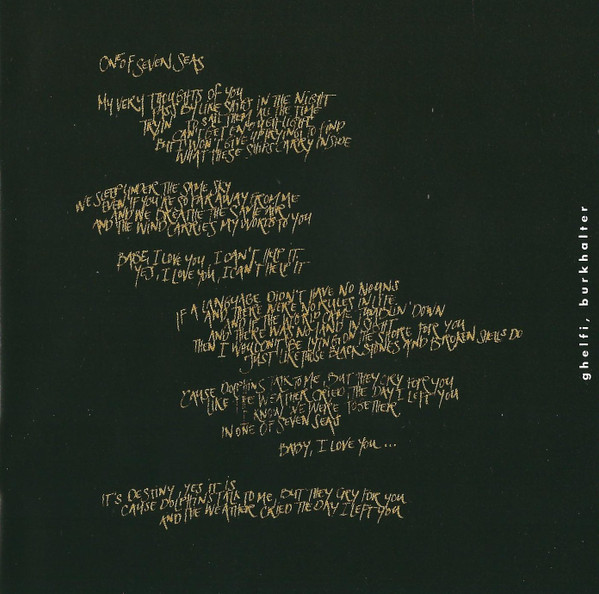 ONE OF SEVEN SEAS
MY VERY THOUGHTS OF YOU
PASS BY LIKE SHIPS IN THE NIGHT
TRYIN' TO SAIL THEM ALL THE TIME
CAN'T GET ENOUGH LIGHT
BUT I WON'T GIVE UP TRYING TO FIND
WHAT THESE SHIPS CARRY INSIDE
WE SLEEP UNDER THE SAME SKY
EVEN IF YOU'RE SO FAR AWAY FROM ME
AND WE BREATHE THE SAME AIR
AND THE WIND CARRIES MY WORDS TO YOU
BABE, I LOVE YOU, I CAN'T HELP IT,
YES, I LOVE YOU, I CAN'T HELP IT
IF A LANGUAGE DIDN'T HAVE NO NOUNS
AND THERE WERE NO RULES IN LIFE
AND IF THE WORLD CAME TUMBLIN' DOWN
AND THERE WAS NO LAND IN SIGHT
THEN I WOULDN'T BE LYING ON THE SHORE FOR YOU
JUST LIKE THOSE BLACK STONES AND BROKEN SHELLS DO
'CAUSE DOLPHINS TALK TO ME, BUT THEY CRY FOR YOU
LIKE THE WEATHER CRIED THE DAY I LEFT YOU
I KNOW WE WERE TOGETHER,
IN ONE OF SEVEN SEAS
BABY, I LOVE YOU ...
IT'S DESTINY, YES IT IS
'CAUSE DOLPHINS TALK TO ME, BUT THEY CRY FOR YOU
AND THE WEATHER CRIED THE DAY I LEFT YOU
ghelfi, burkhalter